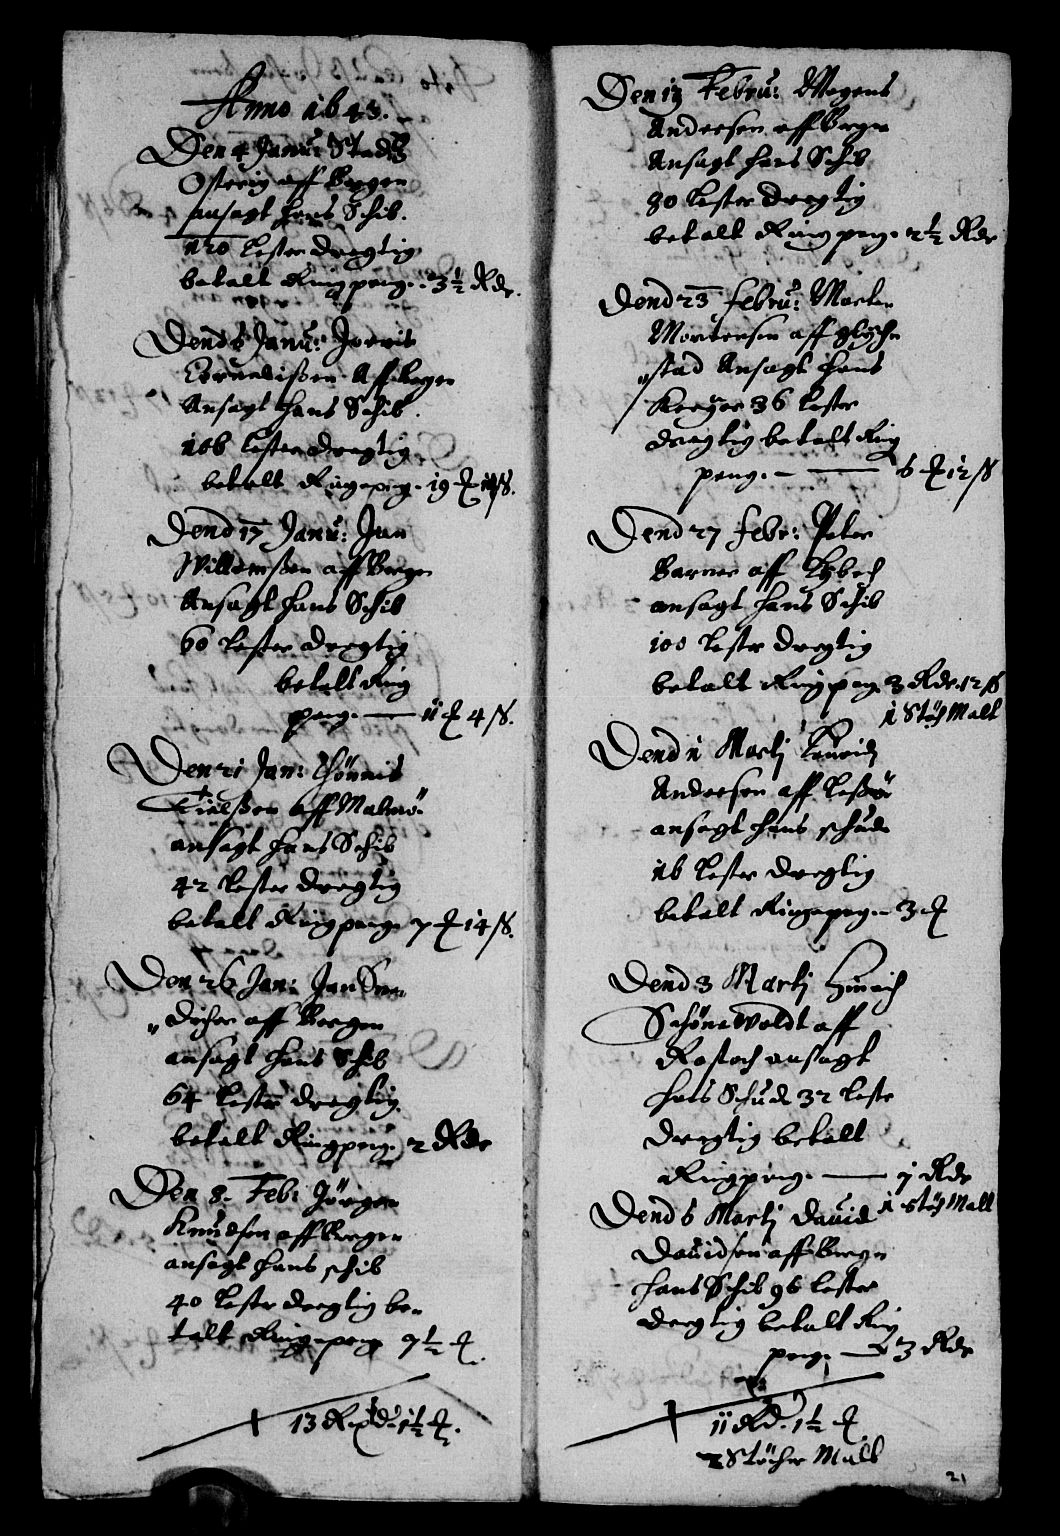 Anno 1643.
Den 4 Janu: Stads
Osterig aff Bergen
ansagt hans Schib.
120 Lester dregtig
betalt Ring peng. 3½ Rdr.
Dend 6 Janu: Joerit
Cornelißen Aff Bergen
Ansagt hans Schib
106 Lester dregtig
betalt Ringepeng. 19 ₰ 14 ß.
Dend 17 Janu: Jan
Willomßen aff Bergen
Ansagt hans Schib
60 Lester dregtig
betalt Ring
peng. — 11 ₰ 4 ß.
Den 21 Jan: Thönnis
Tielßen aff Malmö
ansagt hans Schib
42 Lester dregtig
betalt Ringpeng. 7 ₰ 14 ß.
Den 26 Jan: Jan
dicher aff Bergen
ansagt hans Schib
64 Lester dregtig
betalt Ringpeng. 2 Rdr
Den 8. Feb: Jörgen
Knudsen aff Bergen
ansagt hans schib
40 Lester dregtig be-
talt Ringepeng 7½ ₰.
13 Rixd: 1½ ₰.
Den 13 Febru: Mogens
Andersen aff Bergen
Ansagt hans Schib
80 Lester dregtig
betalt Ring peng. 2½ Rdr
Dend 23 Febru: Morten
Mortensen aff Glych-
„stad Ansagt hans
Kreyer 36 Lester
dregtig betalt Ring
peng. — 6 ₰ 12 ß
Dend 27 Febr: Peter
Barner aff Lybech
ansagt hans Schib
100 Lester dregtig
betalt Ringpeng 3 Rdr. 12 ß
1 Stöch Malt
Dend 1 Martj Lauridz
Andersen aff Leßöe
ansagt hans schude
16 Lester dregtig
betalt Ringepeng. 3 ₰
Dend 3 Martj Hinrich
Schönewoldt aff
Rostoch ansagt
hans Schude 32 Lester
dregtig betalt
Ringpeng. — 1 Rdr
1 Stöch Malt
Dend 6 Martj David
Davidsen aff Bergen
hans Schib 96 Lester
dregtig betalt Ring
peng. — 3 Rdr
11 Rd. 1½ ₰
2 Stöcher Malt
21